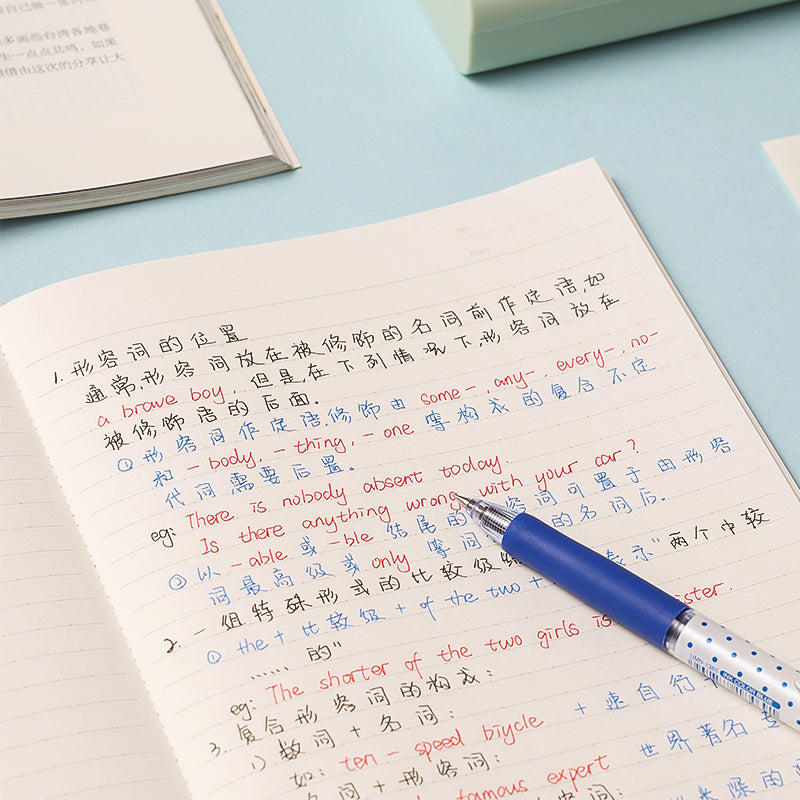 自己做一张的
多画些台湾各地巷
生一点点共鸣，如果
想借由这次的分享让大
No.
Date
1. 形容词的位置
通常,形容词放在被修饰的名词前作定语,如
a brave boy. 但是,在下列情况下,形容词放在
被修饰语的后面.
① 形容词作定语,修饰由 some-, any-, every-, no-
和 -body, -thing, -one 等构成的复合不定
代词需要后置。
eg: There is nobody absent today.
Is there anything wrong with your car?
② 以 -able 或 -ble 结尾的 容词可置于由形容
词最高级或 only 等词 的名词后.
2. 一组特殊形式的比较级
① the + 比较级 + of the two + 表示"两个中较
......的"
eg: The shorter of the two girls is ister.
3. 复合形容词的构成:
1) 数词 + 名词:
如: ten - speed biycle 十速自行
名词 + 形容词:
famous expert 世界著名
词:
UMN-138S
INK COLOR BLUE